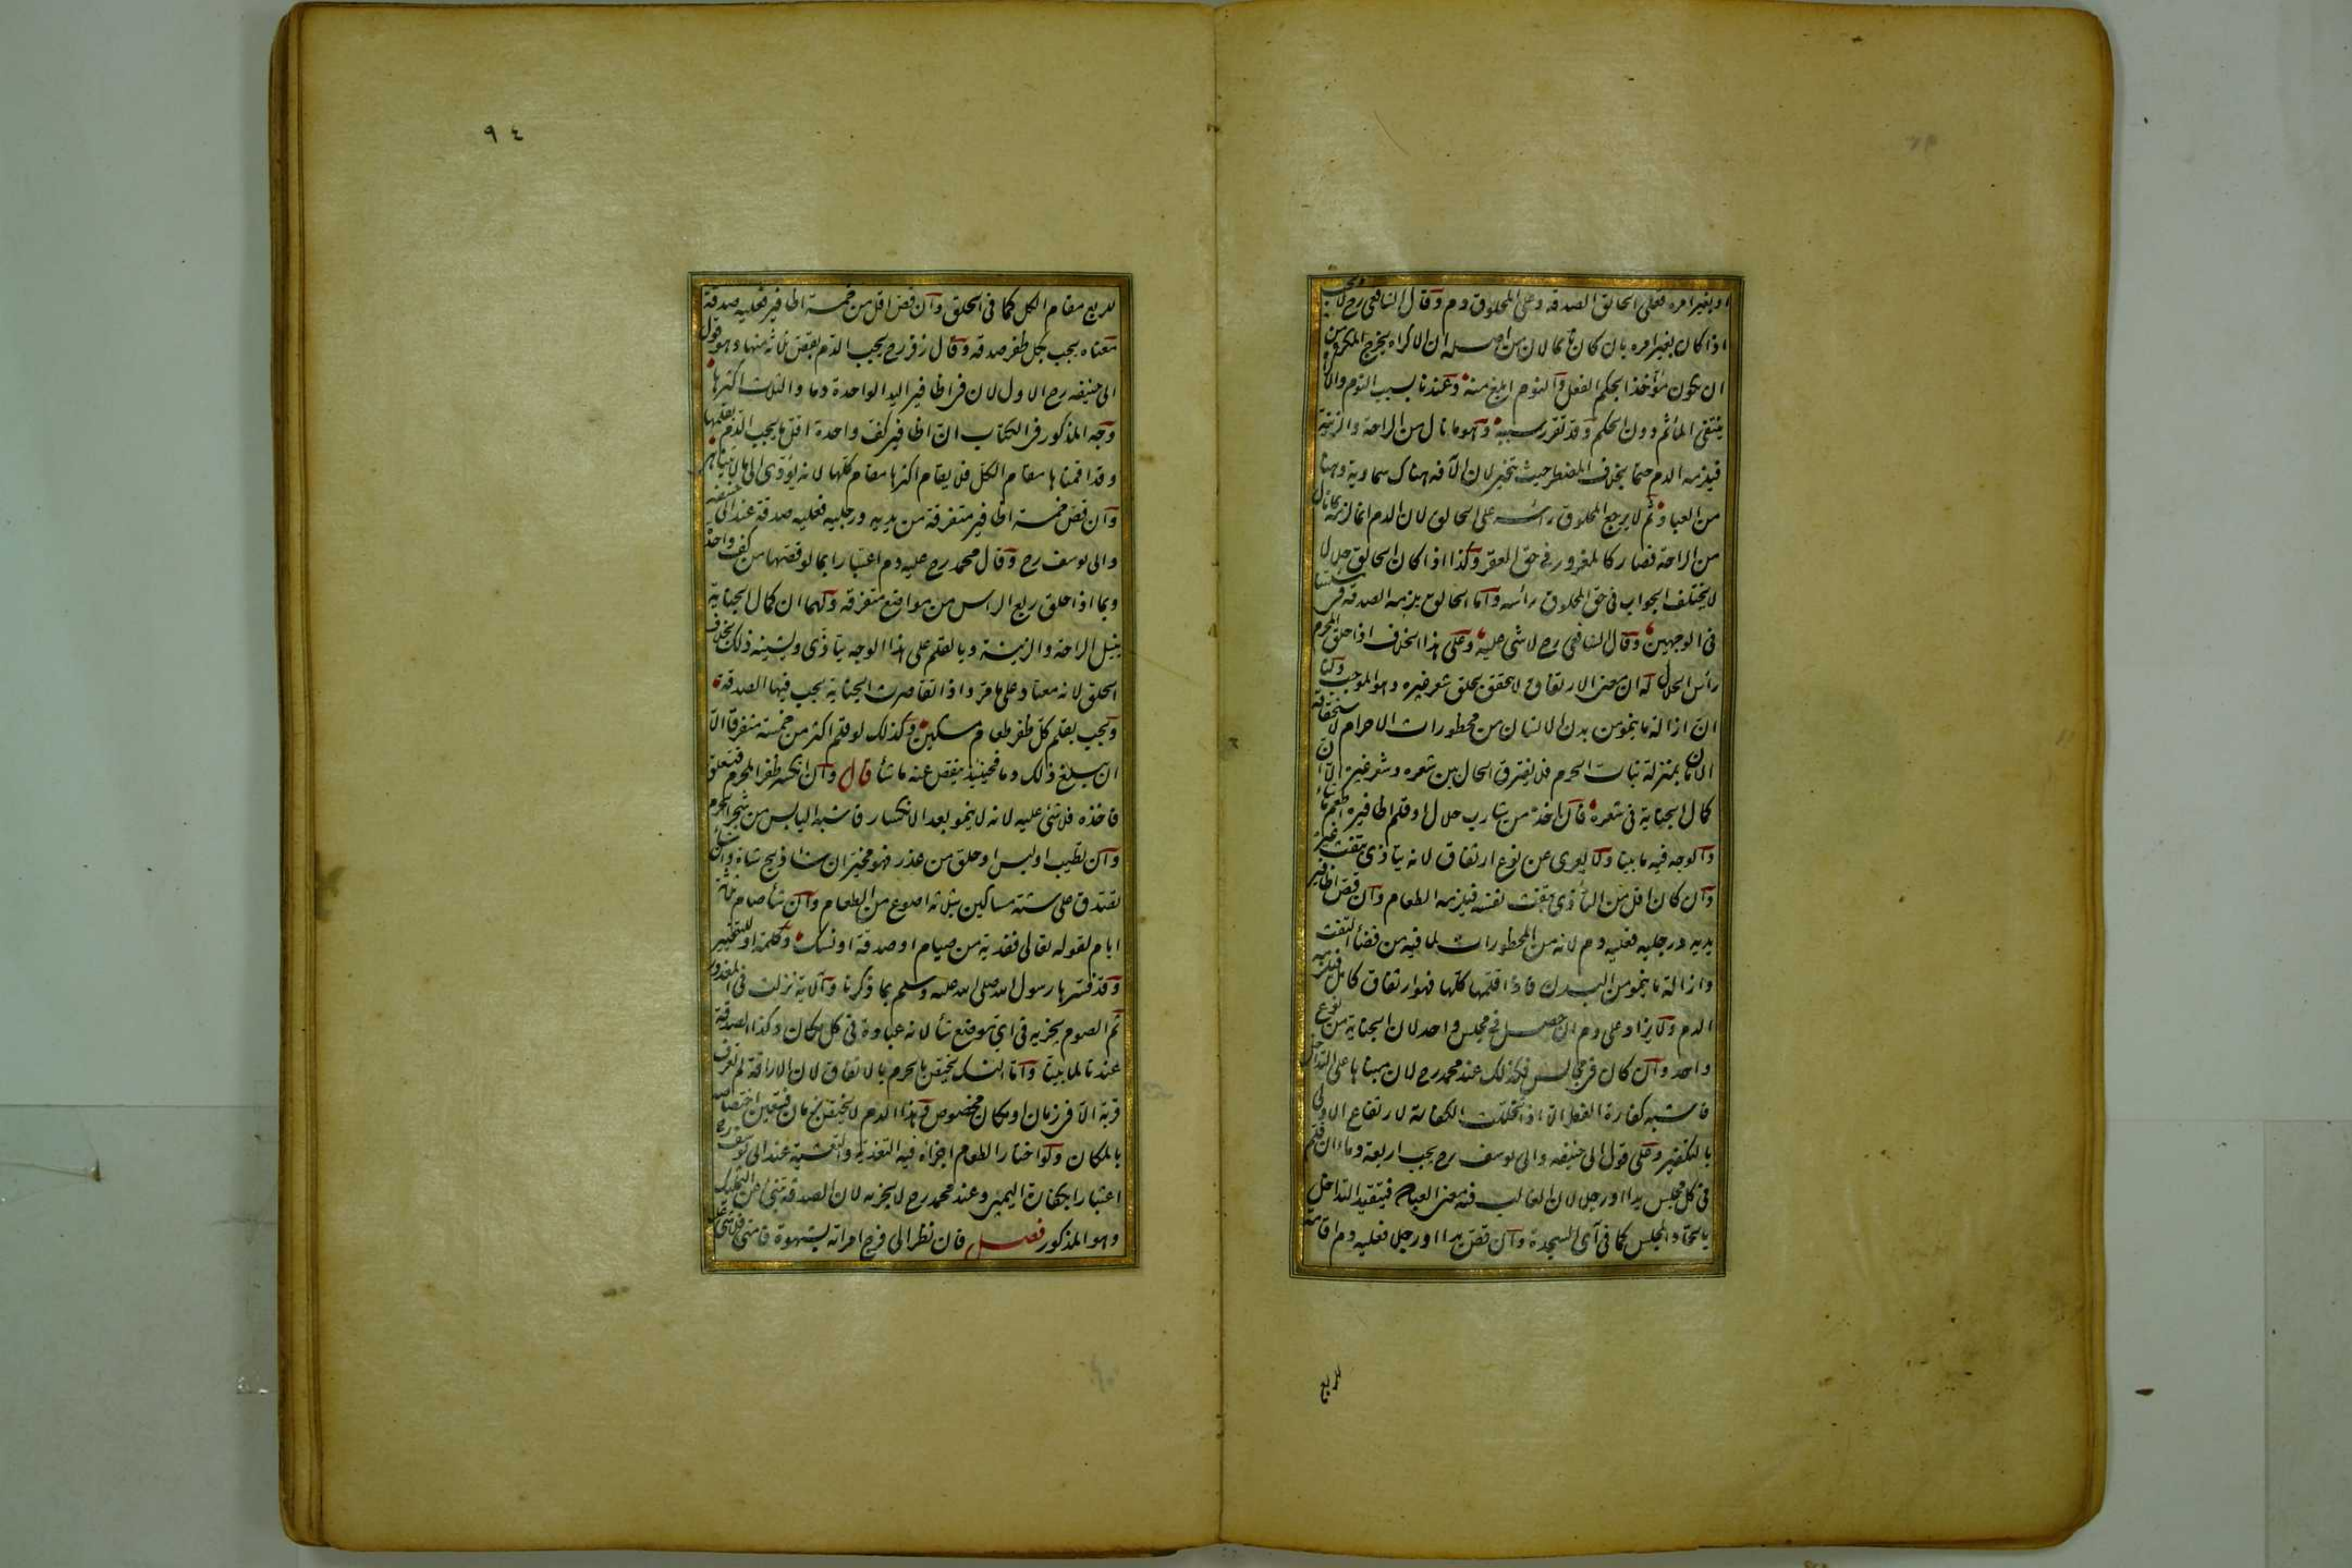 او بغير امره فعلى الحالق الصدقه وعلى المحلوق دم وقال الشافعى رح لا يجب
اذا كان بغير امره بان كان نائما لان من اصله ان الاكراه يخرج المكره من
ان يكون مؤخذا بحكم الفعل والنوم ابلغ منه وعندنا بسبب النوم والاكراه
ينتفى المأثم دون الحكم وقد تقرر سببه وهو ما نال من الراحة والزينة
فيلزمه الدم حتما بخلاف المضطر حيث يتخير لان الآفه هناك سماوية وههنا
من العباد ثم لا يرجع المحلوق رأسه على الحالق لان الدم انما لزمه بما نال
من الراحة فصار كالمغرور فى حق العقر وكذا اذا كان الحالق حلالا
لا يختلف الجواب فى حق المحلوق رأسه واما الحالق يلزمه الصدقه فى مسئلتنا
فى الوجهين وقال الشافعى رح لا شى عليه وعلى هذا الخلاف اذا حلق المحرم
رأس الحلال له ان معنى الارتفاق لا يتحقق بحلق شعر غيره وهو الموجب ولنا
ان ازالة ما ينمو من بدن الانسان من محظورات الاحرام لاستحقاقه
الامان بمنزلة نبات الحرم فلا يفترق الحال بين شعره وشعر غيره الا ان
كمال الجناية فى شعره فان اخذ من شارب حلال او قلم اظافيره اطعم ما شاء
والوجه فيه ما بينا ولا يعرى عن نوع ارتفاق لانه يتأذى بتفث غيره
وان كان اقل من التأذى بتفث نفسه فيلزمه الطعام وان قص اظافير
يديه ورجليه فعليه دم لانه من المحظورات لما فيه من قضاء التفث
وازالة ما ينمو من البدن فاذا قلمها كلها فهو ارتفاق كامل فيلزمه
الدم ولا يزاد على دم ان حصل فى مجلس واحد لان الجناية من نوع
واحد وان كان فى مجالس فكذلك عند محمد رح لان مبناها على التداخل
فاشبه كفارة الفطر الا اذا تخللت الكفارة لارتفاع الاولى
بالتكفير وعلى قول ابى حنيفه وابى يوسف رح يجب اربعة دماء ان قلم
فى كل مجلس يدا او رجلا لان الغالب فيه معنى العبادة فيتقيد التداخل
باتحاد المجلس كما فى آى السجدة وان قص يدا او رجلا فعليه دم اقامة
للربع
٩٤
للربع مقام الكل كما فى الحلق وان قص اقل من خمسة اظافير فعليه صدقة
معناه يجب بكل ظفر صدقه وقال زفر رح يجب الدم بقص ثلاثة منها وهو قول
ابى حنيفه رح الاول لان فى اظافير اليد الواحدة دما والثلث اكثرها
وجه المذكور فى الكتاب ان اظافير كف واحدة اقل ما يجب الدم بقلمها
وقد اقمناها مقام الكل فلا يقام اكثرها مقام كلها لانه يؤدى الى ما لا يتناهى
وان قص خمسة اظافير متفرقة من يديه ورجليه فعليه صدقة عند ابى حنيفه
وابى يوسف رح وقال محمد رح عليه دم اعتبارا بما لو قصها من كف واحد
وبما اذا حلق ربع الراس من مواضع متفرقه ولهما ان كمال الجناية
بنيل الراحة والزينة وبالقلم على هذا الوجه يتأذى ويشينه ذلك بخلاف
الحلق لانه معتاد على ما مر واذا تقاصرت الجناية يجب فيها الصدقة
ويجب بقلم كل ظفر طعام مسكين وكذلك لو قلم اكثر من خمسة متفرقا الا
ان يبلغ ذلك دما فحينئذ ينقص عنه ما شاء قال وان انكسر ظفر المحرم فتعلق
فاخذه فلا شئ عليه لانه لا ينمو بعد الانكسار فاشبه اليابس من شجر الحرم
وان تطيب او لبس او حلق من عذر فهو مخير ان شاء ذبح شاة وان شاء
تصدق على ستة مساكين بثلاثه اصوع من الطعام وان شاء صام ثلثة
ايام لقوله تعالى ففدية من صيام او صدقة او نسك وكلمة او للتخيير
وقد فسرها رسول الله صلى الله عليه وسلم بما ذكرنا والآية نزلت فى المعذور
ثم الصوم يجزيه فى اى موضع شاء لانه عبادة فى كل مكان وكذا الصدقة
عندنا لما بينا واما النسك يختص بالحرم بالاتفاق لان الاراقة لم تعرف
قربة الا فى زمان او مكان مخصوص وهذا الدم لا يختص بزمان فتعين اختصاصه
بالمكان ولو اختار الطعام اجزأه فيه التغذية والتعشية عند ابى يوسف رح
اعتبارا بكفارة اليمين وعند محمد رح لا يجزيه لان الصدقة تنبئ عن التمليك
وهو المذكور فصل فان نظر الى فرج امراته بشهوة فامنى فلا شئ عليه